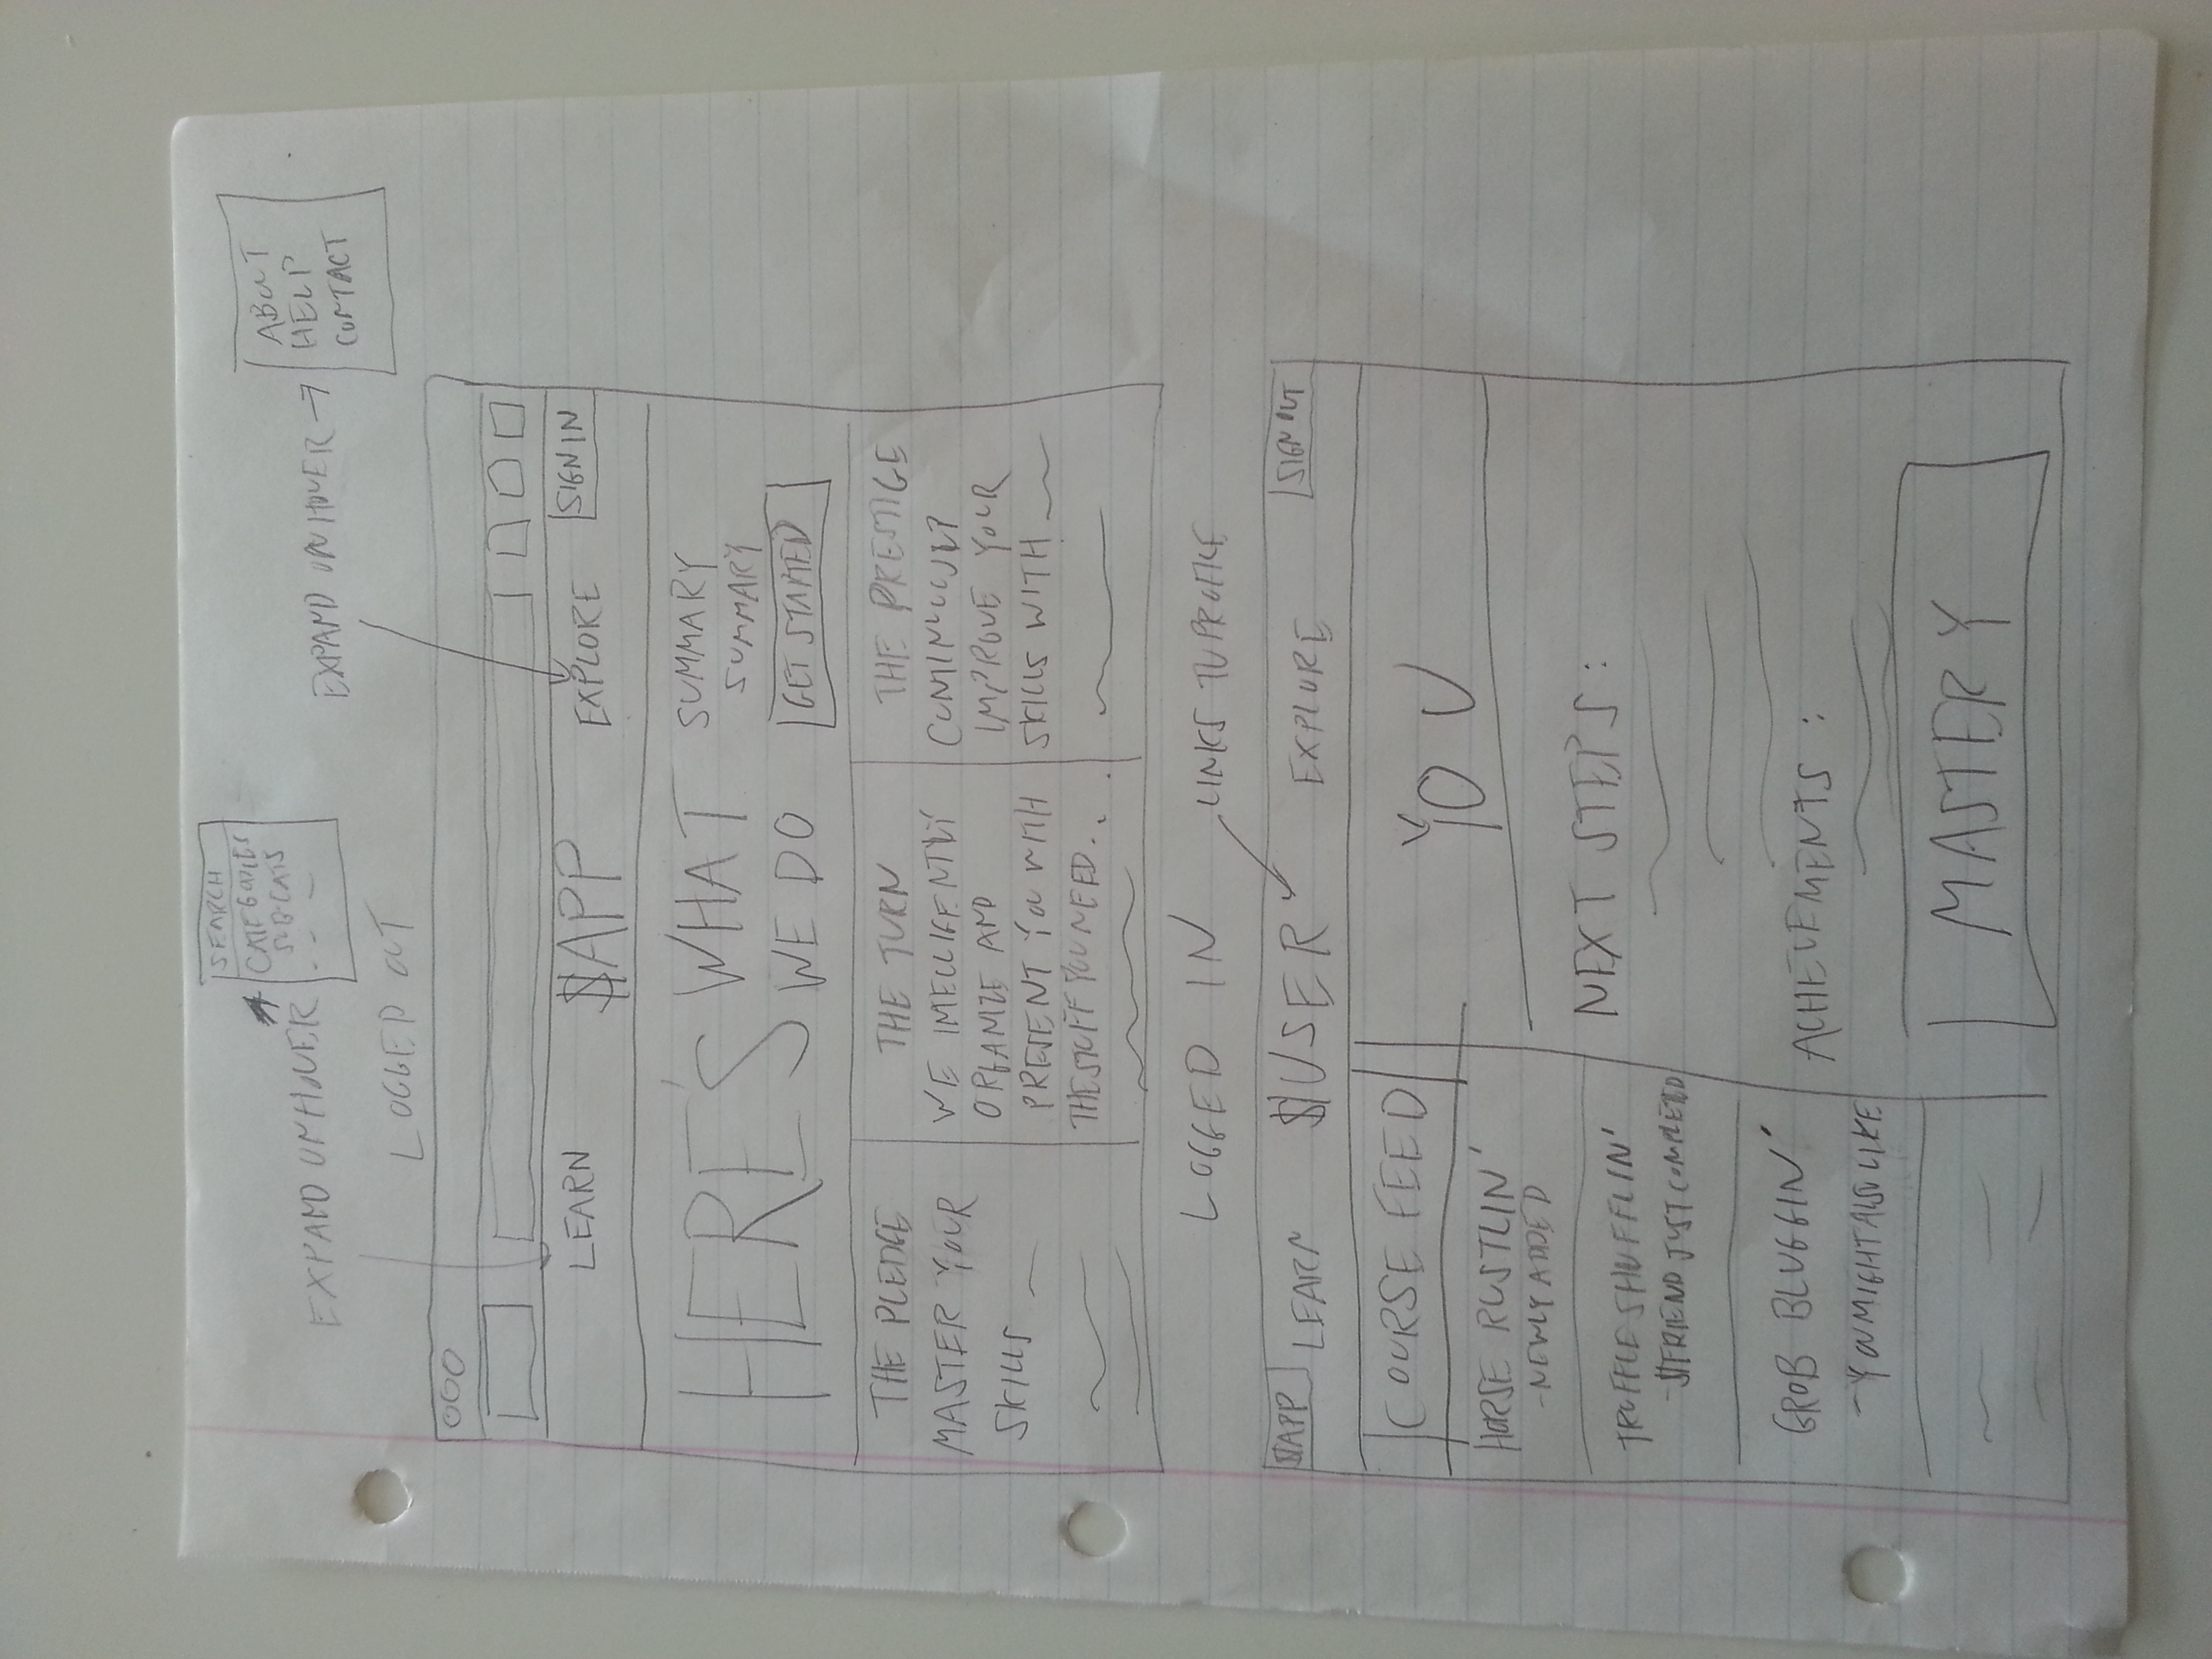 SEARCH
CATEGORIES
SUB-CATS
EXPAND ON HOVER
EXPAND ON HOVER
ABOUT
HELP
CONTACT
LOGGED OUT
LEARN $APP EXPLORE SIGN IN
HERE'S WHAT
WE DO
SUMMARY
SUMMARY
GET STARTED
THE PLEDGE
MASTER YOUR
SKILLS
THE TURN
WE INTELLIGENTLY
ORGANIZE AND
PRESENT YOU WITH
THE STUFF YOU NEED...
THE PRESTIGE
CONTINUOUSLY
IMPROVE YOUR
SKILLS WITH
LOGGED IN
LINKS TO PROFILE
$APP LEARN $USER EXPLORE SIGN OUT
COURSE FEED
HORSE RUSTLIN'
-NEWLY ADDED
TRUFFLE SHUFFLIN'
-$FRIEND JUST COMPLETED
GROB BLUGGIN'
-YOU MIGHT ALSO LIKE
YOU
NEXT STEPS:
ACHIEVEMENTS:
MASTERY